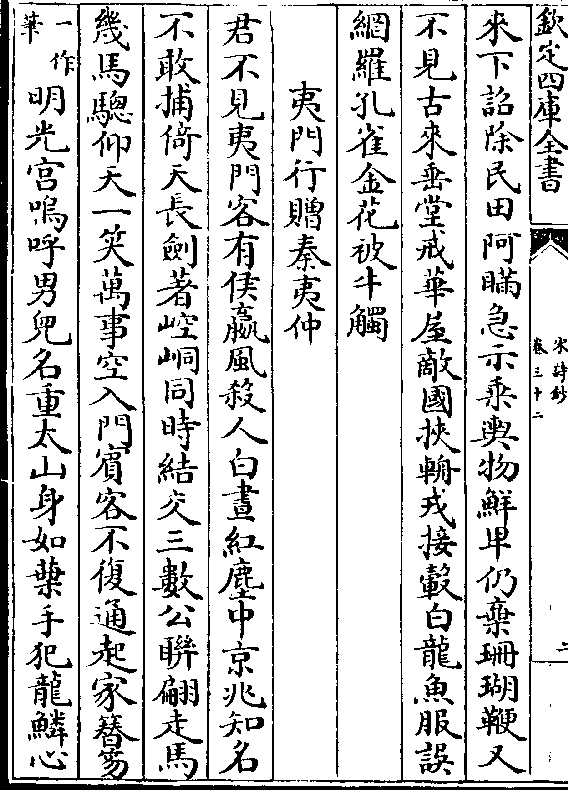 欽定四庫全書
宋詩鈔
卷三十二
二
來下詔除民田阿瞞急示乘輿物鮮卑仍棄珊瑚鞭又
不見古來垂堂戒華屋敵國挾輈戎接轂白龍魚服誤
網羅孔雀金花被牛觸
夷門行贈秦夷仲
君不見夷門客有侯嬴風殺人白晝紅塵中京兆知名
不敢捕倚天長劍著崆峒同時結交三數公聯翩走馬
幾馬驄仰天一笑萬事空入門賓客不復通起家簪笏
一作華
明光宮嗚呼男兒名重太山身如葉手犯龍鱗心